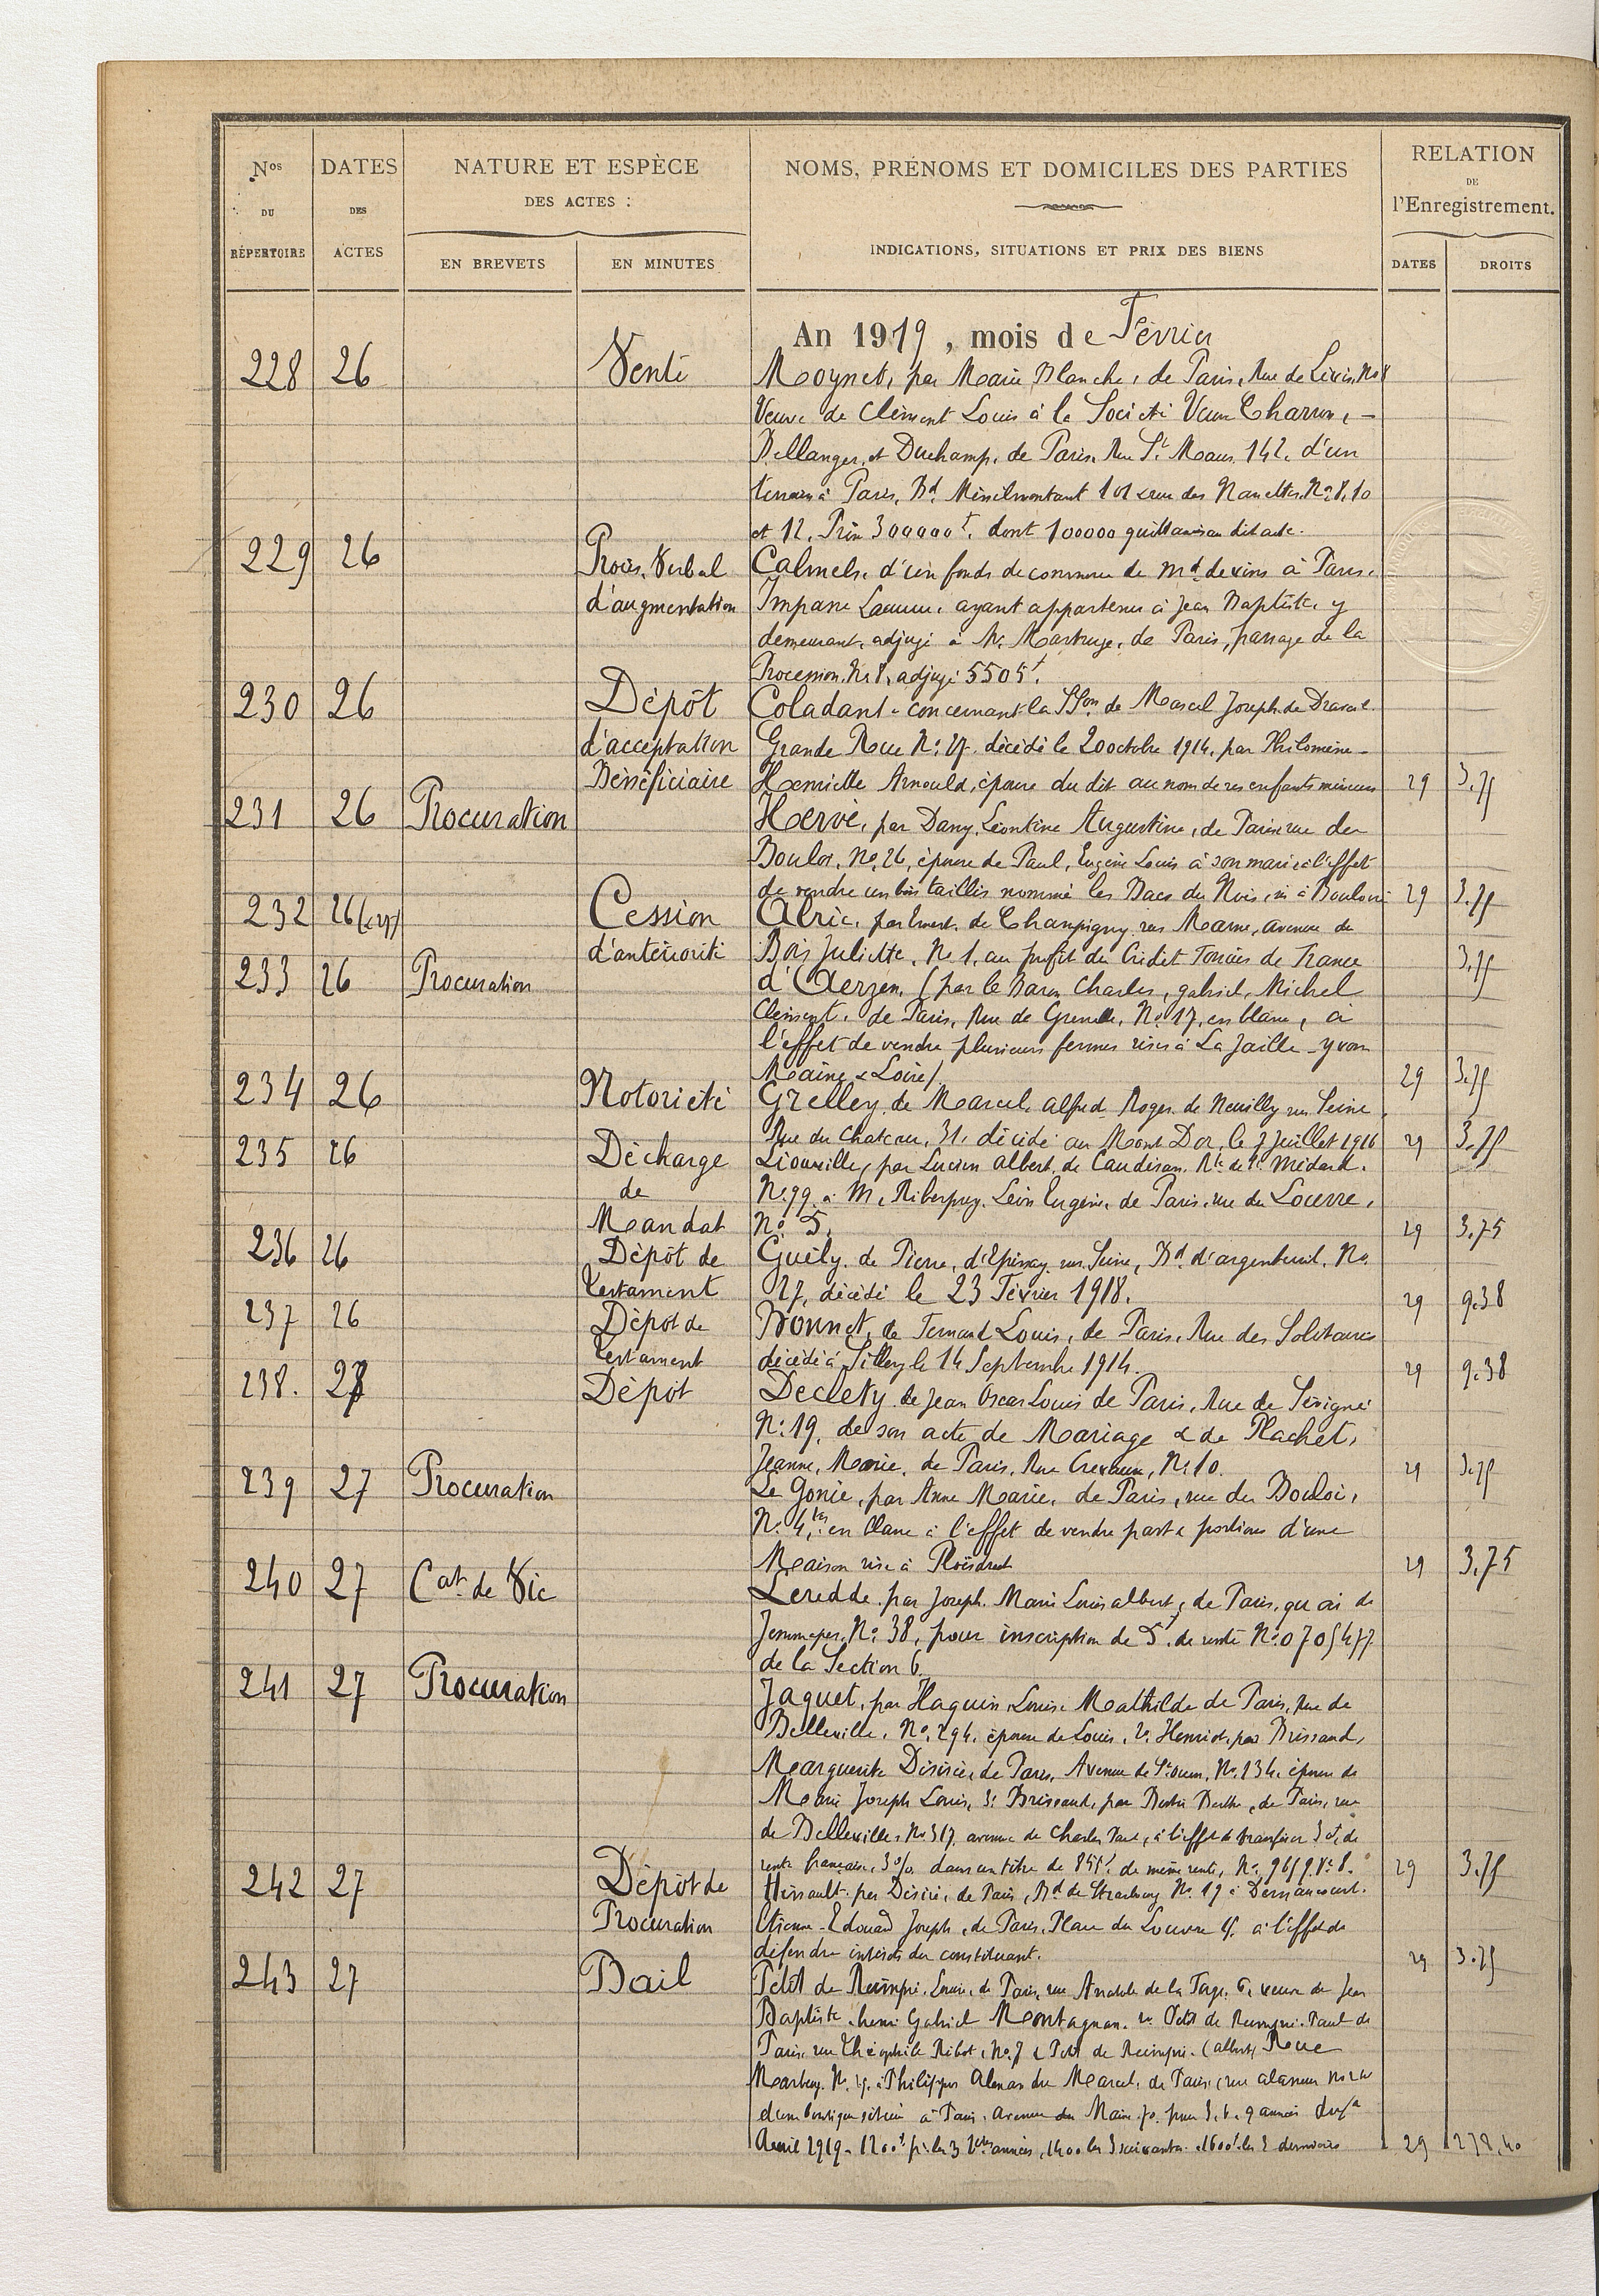 Nos DU RÉPERTOIRE
DATES DES ACTES
NATURE ET ESPÈCE DES ACTES :
EN BREVETS
EN MINUTES
NOMS, PRÉNOMS ET DOMICILES DES PARTIES
INDICATIONS, SITUATIONS ET PRIX DES BIENS
RELATION DE l'Enregistrement.
DATES
DROITS
An 1919, mois de Février
228 26 Vente Moynet, par Marie Blanche, de Paris, Rue de No 8
Veuve de Clément Louis à la Société Veuve Charron, —
Bellanger, et Duchamp, de Paris, Rue St Maur, 142, d'un
terrain à Paris, Bd Ménilmontant 101 & rue des Nanettes, No 8, 10
et 12. Prix 300000f, dont 100000 quittancés au dit acte.
229 26 Procès, Verbal Calmels, d'un fonds de commerce de md de vins à Paris,
d'augmentation Impasse ayant appartenu à Jean Baptiste, y
demeurant, adjugé à M. de Paris, passage de la
Procession, No 8, adjugé 5505f.
230 26 Dépôt Coladant, concernant la Sson de Marcel Joseph, de Draveil
d'acceptation Grande Rue No décédé le 20 octobre 1914, par Philomène
Bénéficiaire Henriette Arnould, épouse du dit au nom de ses enfants mineurs 29 3.75
231 26 Procuration Hervé, par Dany, Léontine Augustine, de Paris, rue du
Bouloi, No 26, épouse de Paul, Eugène Louis à son mari à l'effet
de vendre un bois taillis nommé les Bacs du sis à 29 3.75
232 26 Cession Alric, par de Champigny sur Marne, avenue de
d'antériorité Bois Juliette, No 1, au profit du Crédit Foncier de France 3.75
233 26 Procuration d'Aerzen, (par le Baron Charles, gabriel, Michel
Clément, de Paris, Rue de Grenelle, No 17, en blanc, à
l'effet de vendre plusieurs fermes sises à La Jaille-Yvon
Maine & Loire) 29 3.75
234 26 Notoriété Grelley, de Marcel, alfred, Roger, de Neuilly sur Seine
Rue du Chateau, 31, décédé au Mont Dor, le 7 Juillet 1916 29 3.75
235 26 Décharge Liouville, par Lucien Albert, de Caudéran, Rte de St Médard,
de No 99 à M. Léon Eugène, de Paris, rue du Louvre,
Mandat No 5. 29 3.75
236 26 Dépôt de Guély, de Pierre, d'Epinay sur Seine, Bd d'argenteuil, No
testament 27, décédé le 23 Février 1918. 29 9.38
237 26 Dépôt de Bonnet, de Fernand Louis, de Paris, Rue des Solitaires
testament décédé à Sillery le 14 Septembre 1914. 29 9.38
238. 27 Dépôt Declety, de Jean Oscar Louis de Paris, Rue de Sévigné
No 19, de son acte de Mariage & de Plachet,
Jeanne, Marie, de Paris, Rue No 10. 29 3.75
239 27 Procuration Le Gonie, par Anne Marie, de Paris, rue du Bouloi,
No 4 ter en blanc à l'effet de vendre part & portions d'une
Maison sise à 29 3.75
240 27 Cat de Vie Leredde, par Joseph, Marie Louis albert, de Paris, quai de
Jemmapes, No 38, pour inscription de 5f. de rente No 0705477
de la Section 6.
241 27 Procuration Jaquet, par Haquin, Louise Mathilde de Paris, Rue de
Belleville, No 294, épouse de Louis, 2o Henriot, par Brissaud,
Marguerite Désirée, de Paris, Avenue de St Ouen, No 134, épouse de
Marie Joseph Louis, 3o Brissaud, par Berthe, de Paris, rue
de Belleville, No 317, de Charles à l'effet de transférer de
rente française, 3% dans un titre de de même rente, No 29 3.75
242 27 Dépôt de Hérisault, par Désiré, de Paris, Bd de Strasbourg No 19 à Dernancourt,
Procuration Etienne-Edouard Joseph, de Paris, Place du Louvre à l'effet de
défendre intérêts du constituant. 29 3.75
243 27 Bail Petit de Louise, de Paris, rue Anatole de la Forge, 6, veuve de Jean
Baptiste, henri Gabriel Montagnan, 2o Petit de Paul de
Paris, rue Théophile Ribot, No 7 & Petit de (albert) Rue
No à Philippon Marcel, de Paris, rue
d'une boutique située à Paris, avenue du Maine, 70, pour 3, 6, 9 années du
Avril 1919, 1200f p. les 3 1ères années, 1400 les 3 suivantes, 1600f les 3 dernières 29 278,40